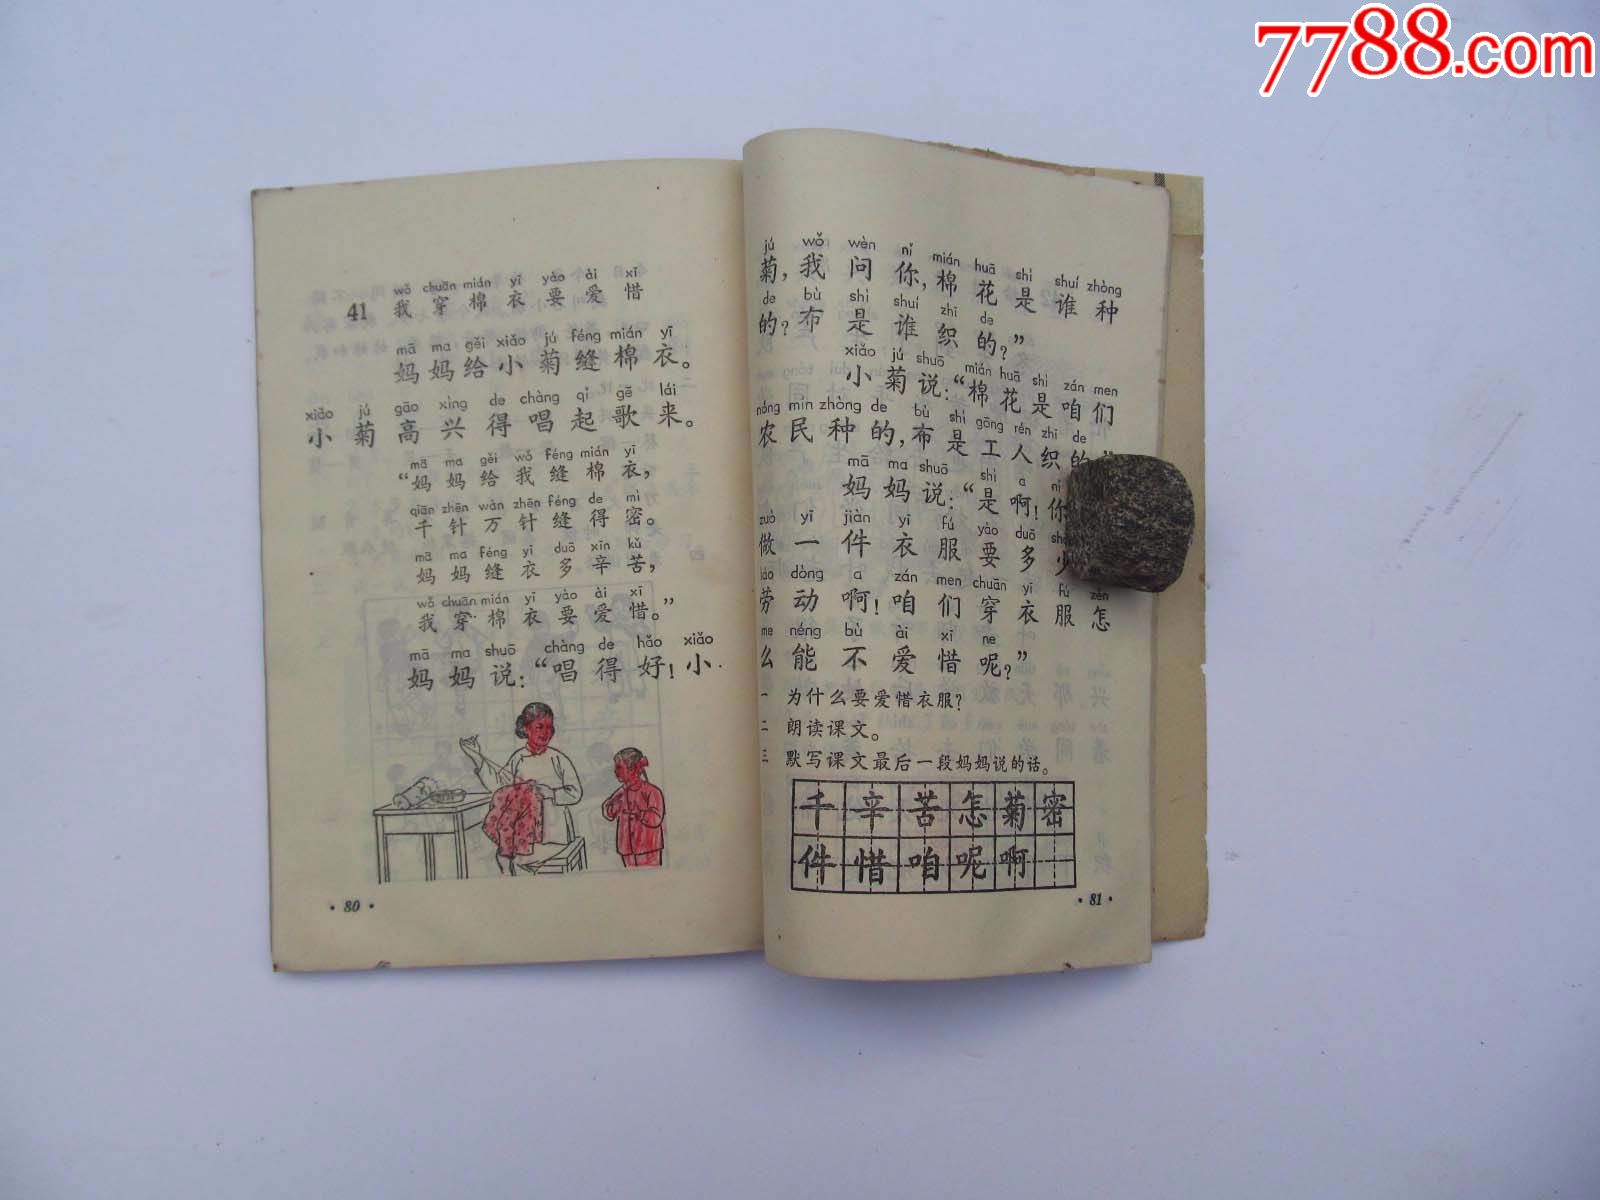 7788.com
41
wǒ chuān mián yī yào ài xī
我穿棉衣要爱惜
mā ma gěi xiǎo jú féng mián yī
妈妈给小菊缝棉衣。
xiǎo jú gāo xìng de chàng qǐ gē lái
小菊高兴得唱起歌来。
mā ma gěi wǒ féng mián yī
“妈妈给我缝棉衣,
qiān zhēn wàn zhēn féng de mì
千针万针缝得密。
mā ma féng yī duō xīn kǔ
妈妈缝衣多辛苦,
wǒ chuān mián yī yào ài xī
我穿棉衣要爱惜。”
mā ma shuō chàng de hǎo xiǎo
妈妈说:“唱得好!小
· 80 ·
jú wǒ wèn nǐ mián huā shì shuí zhòng
菊,我问你,棉花是谁种
de bù shì shuí zhī de
的?布是谁织的?”
xiǎo jú shuō mián huā shì zán men
小菊说:“棉花是咱们
nóng mín zhòng de bù shì gōng rén zhī de
农民种的,布是工人织的
mā ma shuō shì a nǐ
妈妈说:“是啊!你
zuò yī jiàn yī fú yào duō
做一件衣服要多少
láo dòng a zán men chuān yī fú zěn
劳动啊!咱们穿衣服怎
me néng bù ài xī ne
么能不爱惜呢?”
一 为什么要爱惜衣服?
二 朗读课文。
三 默写课文最后一段妈妈说的话。
千辛苦怎菊密
件惜咱呢啊
· 81 ·